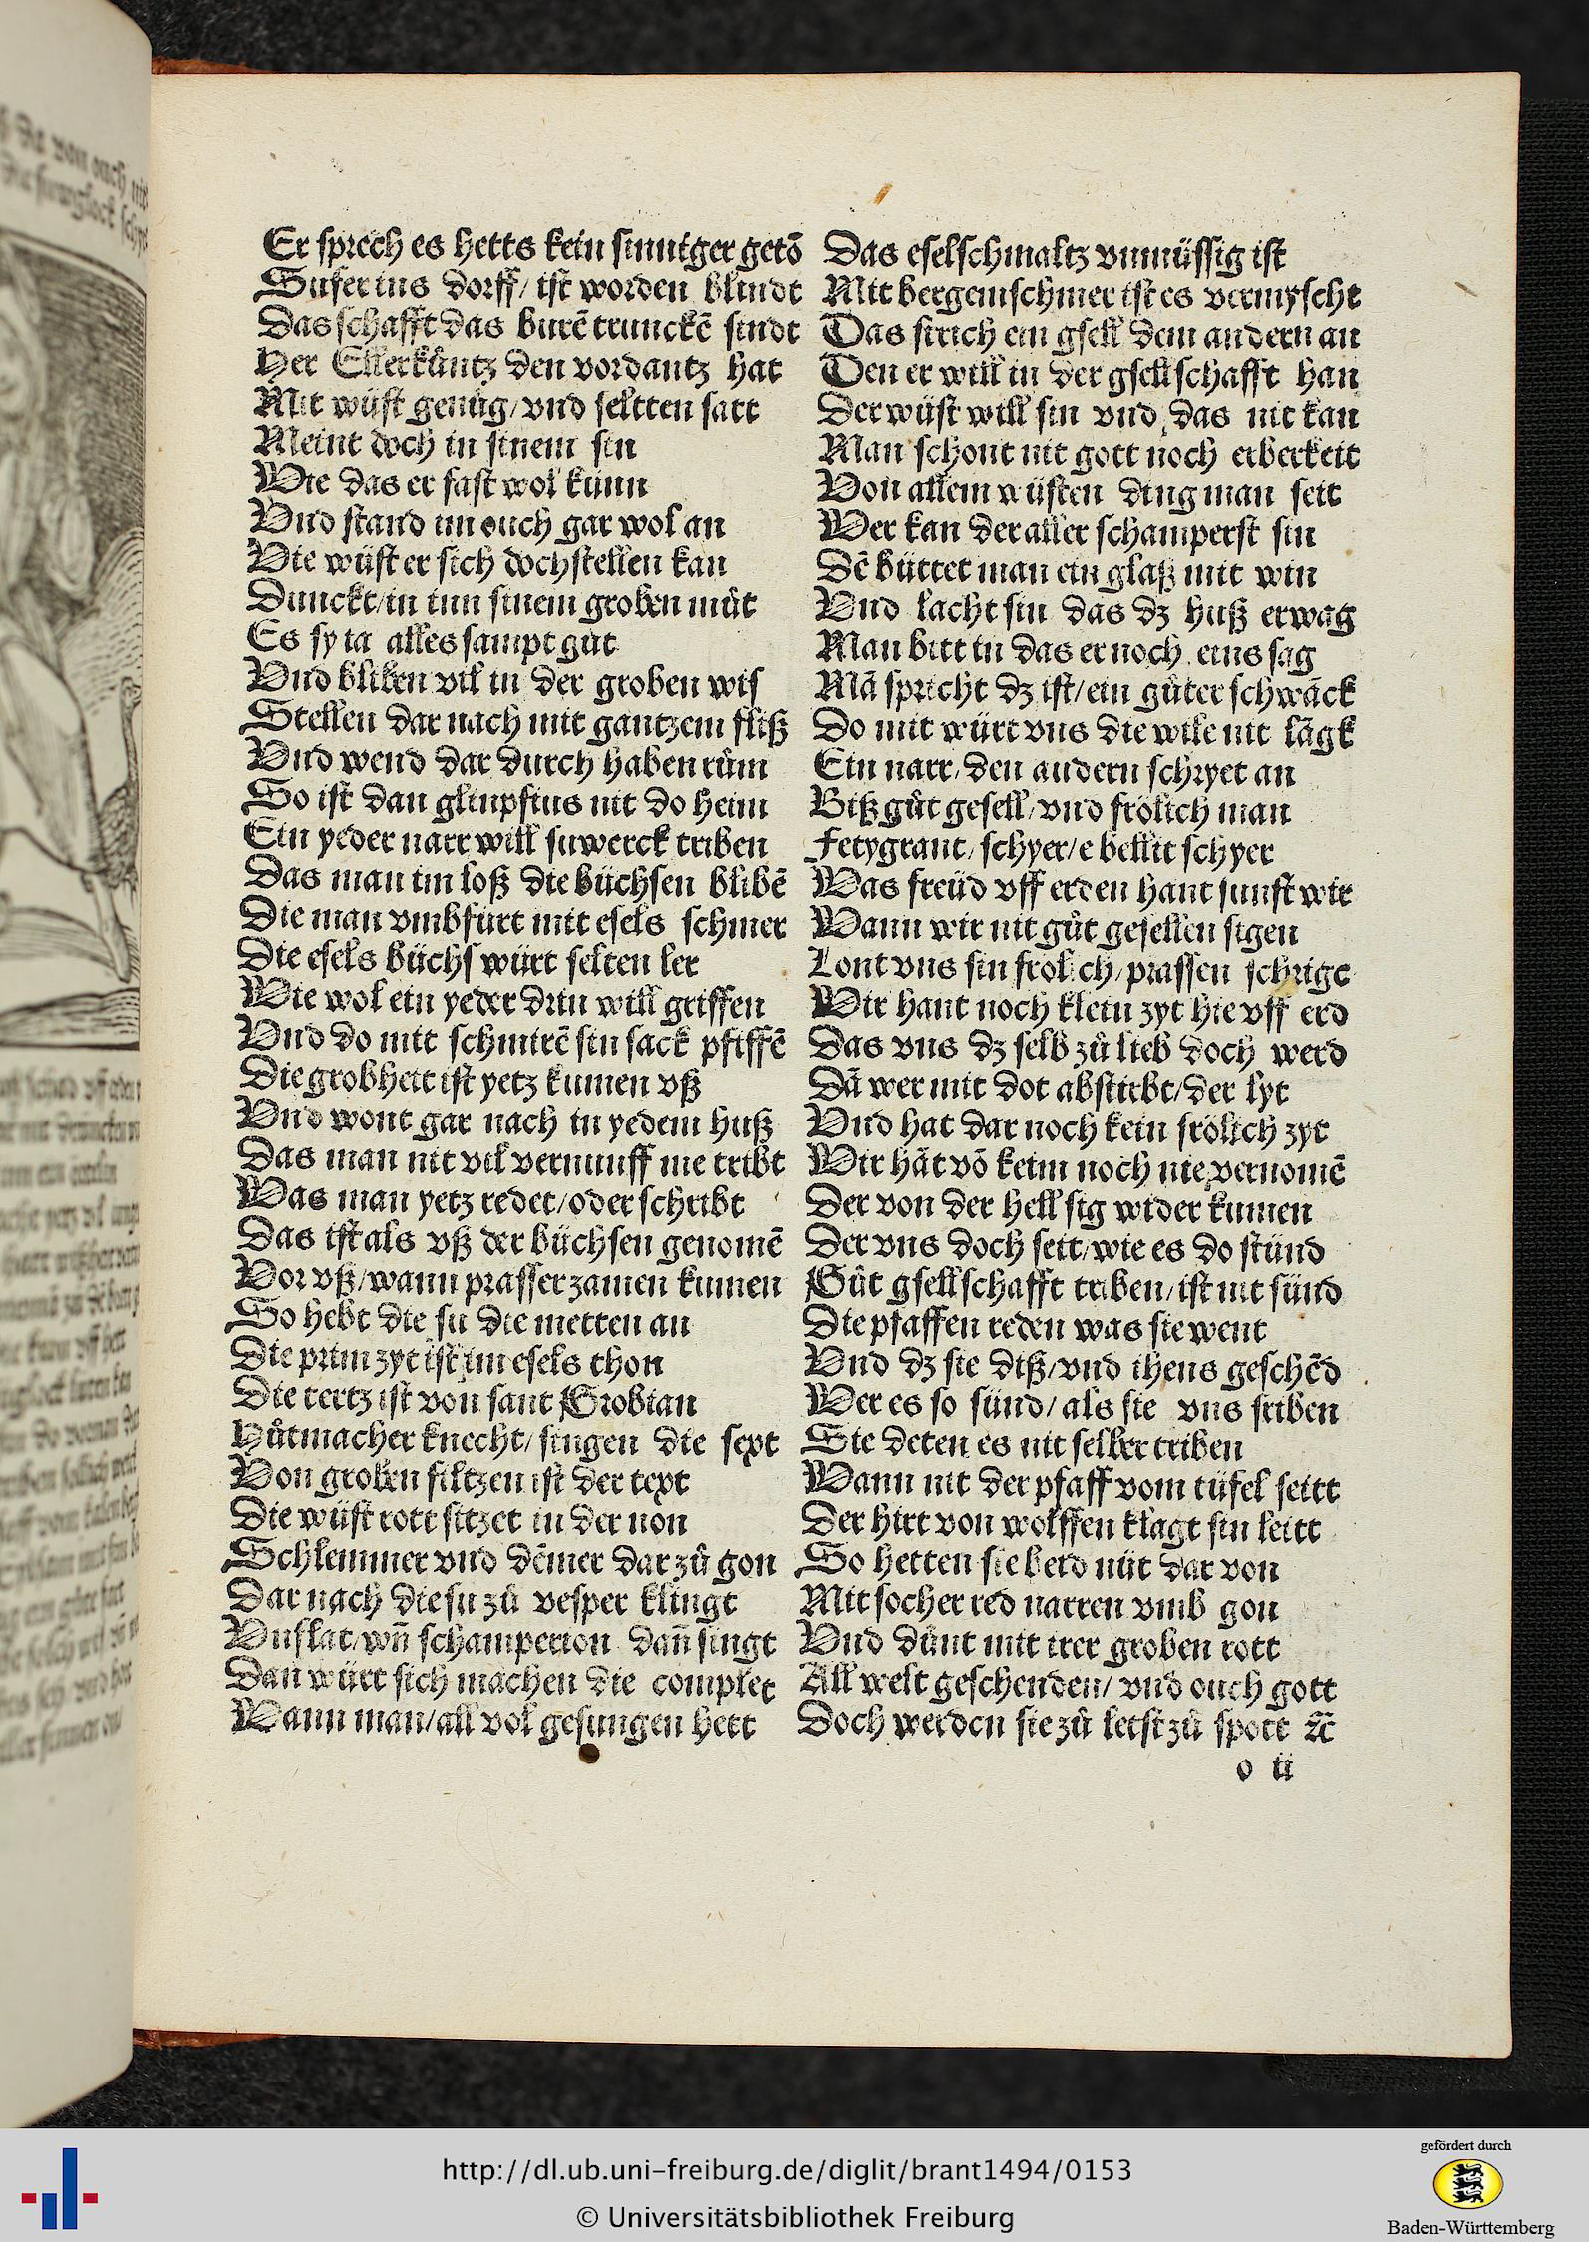 Er sprech es hetts kein sinniger getō
Sufer ins dorff/ ist worden blindt
Das schafft das burē trunckē sindt
Her Ellerkůntz den vordantz hat
Mit wůst genůg/ vnd seltten satt
Meint doch in sinem sin
Wie das er fast wol künn
Vnd stand im ouch gar wol an
Wie wüst er sich doch stellen kan
Dunckt/in inn sinem groben můt
Es sy ia alles sampt gůt
Vnd bliben vil in der groben wis
Stellen dar nach mit gantzem fliß
Vnd wend dar durch haben rům
So ist dan glinpfius nit do heim
Ein yeder narr will suwerck triben
Das man im loß die büchsen blibē
Die man vmbfürt mit esels schmer
Die esels büchs würt selten ler
Wie wol ein yeder drin will griffen
Vnd do mit schmirē sin sack pfiffē
Die grobheit ist yetz kumen vß
Vnd wont gar nach in yedem huß
Das man nit vil vernunff me tribt
Was man yetz redet/oder schribt
Das ist als vß der büchsen genomē
Vor vß/wann prasser zamen kumen
So hebt die su die metten an
Die prim zyt ist im esels thon
Die tertz ist von sant Grobian
Hůtmacher knecht/ singen die sext
Von groben filtzen ist der text
Die wüst rott sitzet in der non
Schlemmer vnd dēmer dar zů gon
Dar nach die su zů vesper klingt
Vnflat/wn̄ schamperion dan̄ singt
Dan würt sich machen die complet
Wann man/all vol gesungen hett
Das eselschmaltz vnmüssig ist
Mit bergemschmer ist es vermyscht
Das strich ein gsell dem andern an
Den er will in der gsellschafft han
Der wüst will sin vnd das nit kan
Man schont nit gott noch erberkeit
Von allem wüsten ding man seit
Wer kan der aller schamperst sin
Dē büttet man ein glaß mit win
Vnd lacht sin das dz huß erwag
Man bitt in das er noch eins sag
Mā spricht dz ist/ein gůter schwāck
Do mit würt vns die wile nit lāgk
Ein narr/ den andern schryet an
Biß gůt gesell/ vnd frölich man
Fetygrant/ schyer/e bellit schyer
Was freüd vff erden hant sunst wir
Wann wir nit gůt gesellen sigen
Lont vns sin frölich/prassen schrige
Wir hant noch klein zyt hie vff erd
Das vns dz selb zů lieb doch werd
Dā wer mit dot abstirbt/der lyt
Vnd hat dar noch kein frölich zyt
Wir hāt vō keim noch nie vernomē
Der von der hell sig wider kumen
Der vns doch seit/wie es do stünd
Gůt gsellschafft triben/ist nit sünd
Die pfaffen reden was sie went
Vnd dz sie diß/vnd ihens geschēd
Wer es so sünd/ als sie vns sriben
Sie deten es nit selber triben
Wann nit der pfaff vom tüfel seitt
Der hirt von wolffen klagt sin leitt
So hetten sie beid nüt dar von
Mit socher red narren vmb gon
Vnd důnt mit irer groben rott
All welt geschenden/ vnd ouch gott
Doch werden sie zů letst zů spott ⁊c̄
o ii
http://dl.ub.uni-freiburg.de/diglit/brant1494/0153
© Universitätsbibliothek Freiburg
gefördert durch
Baden-Württemberg